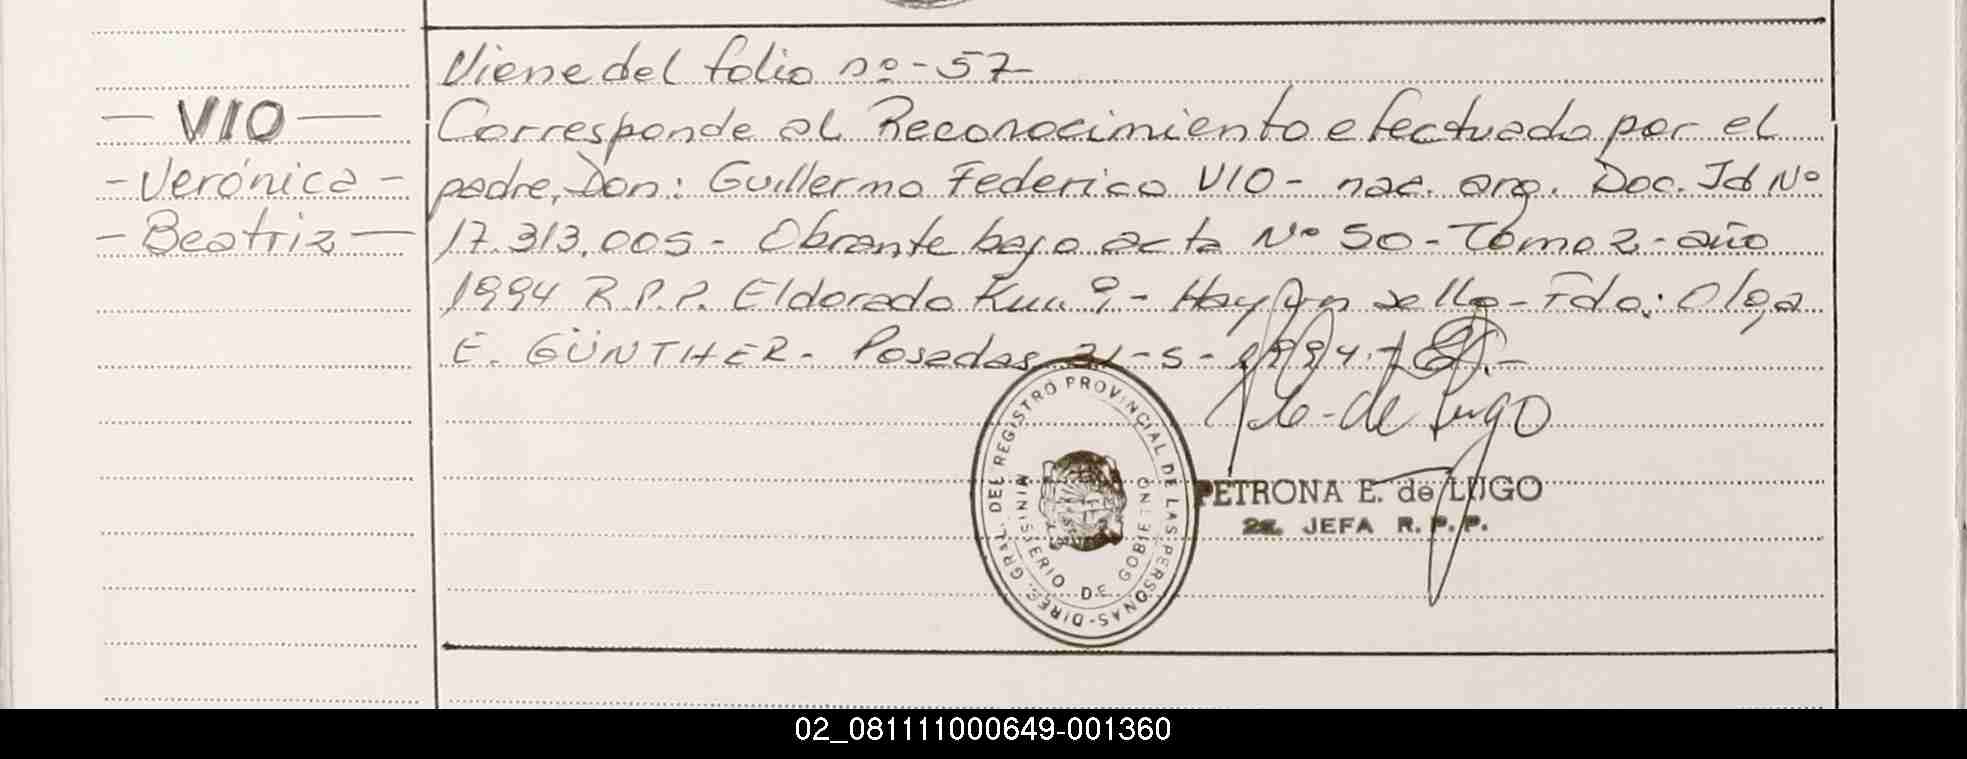 Viene del folio nº-57
— VIO — Corresponde al Reconocimiento efectuado por el
- Verónica - padre, Don: Guillermo Federico VIO - nac. arg. Doc. Id Nº
- Beatriz — 17.313.005 - Obrante bajo acta Nº 50 - Tomo 2 - año
1994 R.P.P. Eldorado - Hay un sello - Fdo.: Olga
E. GÜNTHER. Posadas 31-5-1994.-
de Lugo
PETRONA E. de LUGO
JEFA R. P. P.
DIREC. GRAL. DEL REGISTRO PROVINCIAL DE LAS PERSONAS
MINISTERIO DE GOBIERNO
02_081111000649-001360